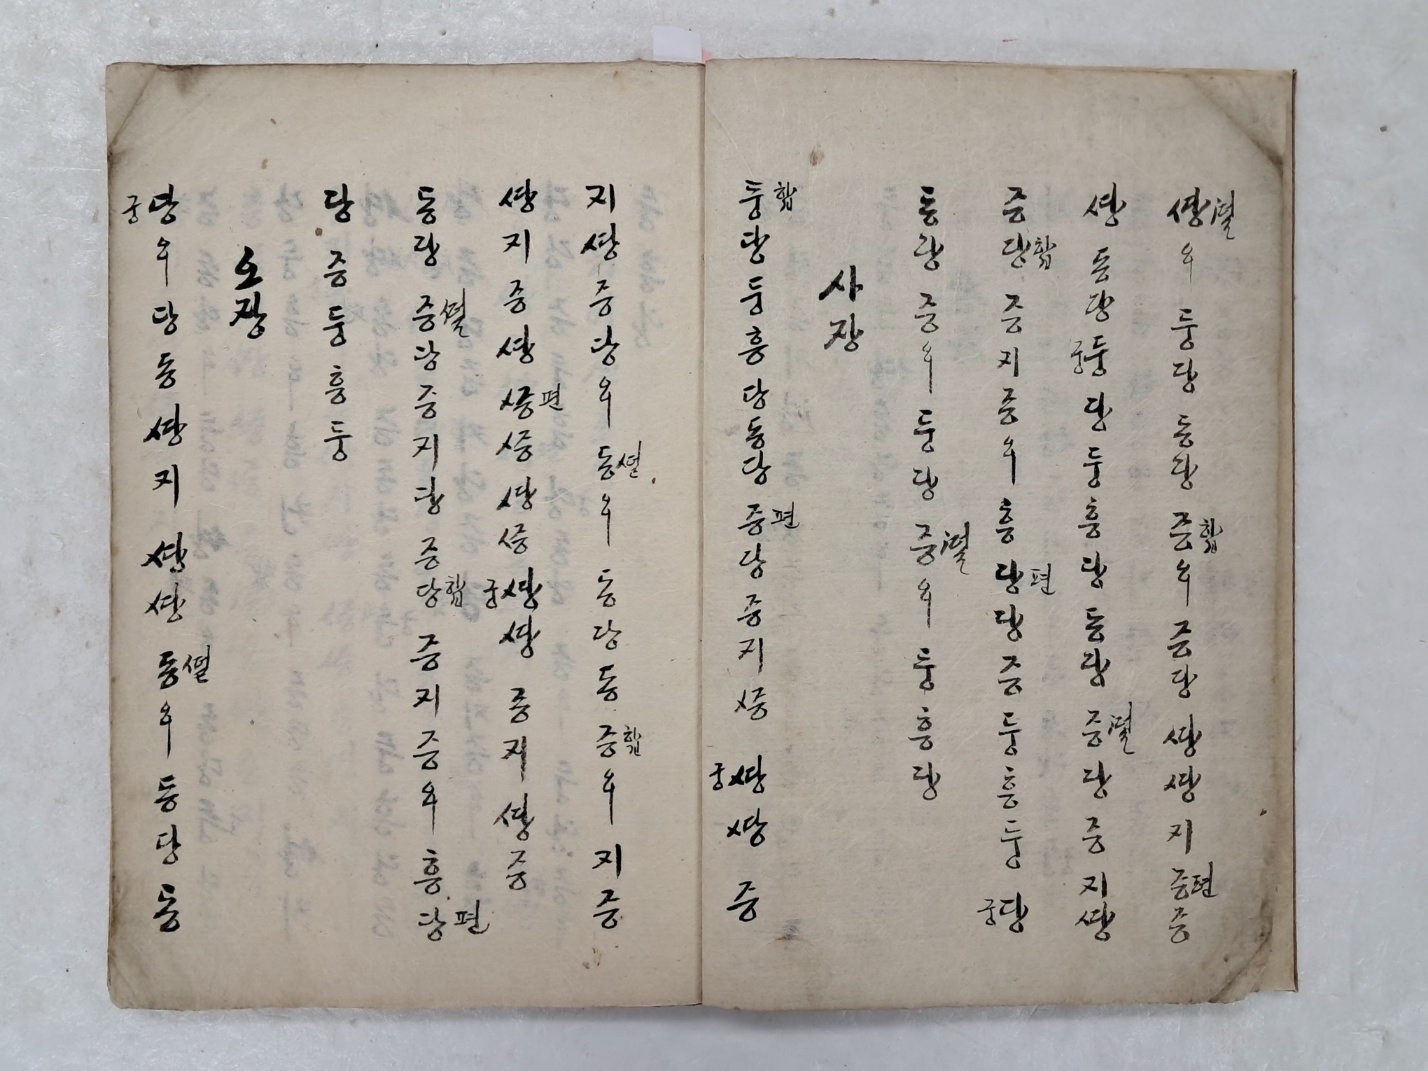 쌍뎔 우 둥 당 동 당 증합 우 증 당 쌍 쌍 지 증편 증
쌍 동 당 궁둥 당 둥 흥 당 동 당 증뎔 당 증 지 쌍
증 당합 증 지 증 우 흥 당편 당 증 둥 흥 둥 궁당
동 랑 증 우 둥 당 증뎔 우 둥 흥 당
사장
둥합 당 둥 흥 당 동 당 증편 당 증 지 쓩 궁쌍 쌍 증
지 쌍 증 당 우 동뎔 우 동 당 동 증합 우 지 증
쌍 지 증 쌍 쓩편 쓩 쌍 쓩 궁쌍 쌍 증 지 쌍 증
동 당 증뎔 당 증 지 당 증 당합 증 지 증 우 흥 당편
당 증 둥 흥 둥
오장
궁당 우 당 동 쌍 지 쌍 쌍 동뎔 우 동 당 동